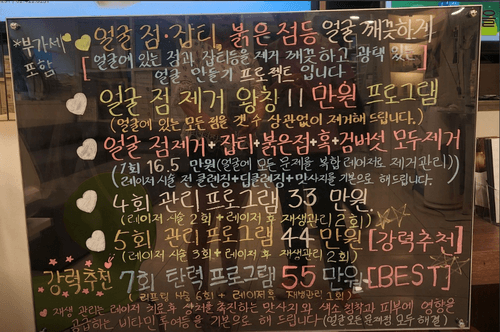 *부가세 포함
얼굴 점·잡티, 붉은 점등 얼굴 깨끗하자
[얼굴에 있는 점과 잡티등을 제거 깨끗하고 광택 있는
얼굴 만들기 프로젝트 입니다]
얼굴 점 제거 왕창 11 만원 프로그램
(얼굴에 있는 모든 점을 갯수 상관없이 제거해 드립니다.)
얼굴 점제거+잡티+붉은점+혹+검버섯 모두제거
(1회 16.5 만원(얼굴에 모든 문제를 복합 레이저로 제거관리))
(레이저 시술 전 클렌징+딥클렌징+맛사지를 기본으로 해드립니다.
4회 관리 프로그램 33 만원
(레이저 시술 2회 + 레이저 후 재생관리 2회)
5회 관리 프로그램 44 만원 [강력추천]
(레이저 시술 3회 + 레이저 후 재생관리 2회)
강력추천 7회 탄력 프로그램 55 만원 [BEST]
(리프팅 시술 6회 + 레이저후 재생관리 1회)
재생 관리는 레이저 치료후 상처를 촉진하는 맛사지와 색소 침착과 피부에 영향을
공급하는 비타민 투여등을 기본으로 해 드립니다 (얼굴의 모든 문제 모두 해결)